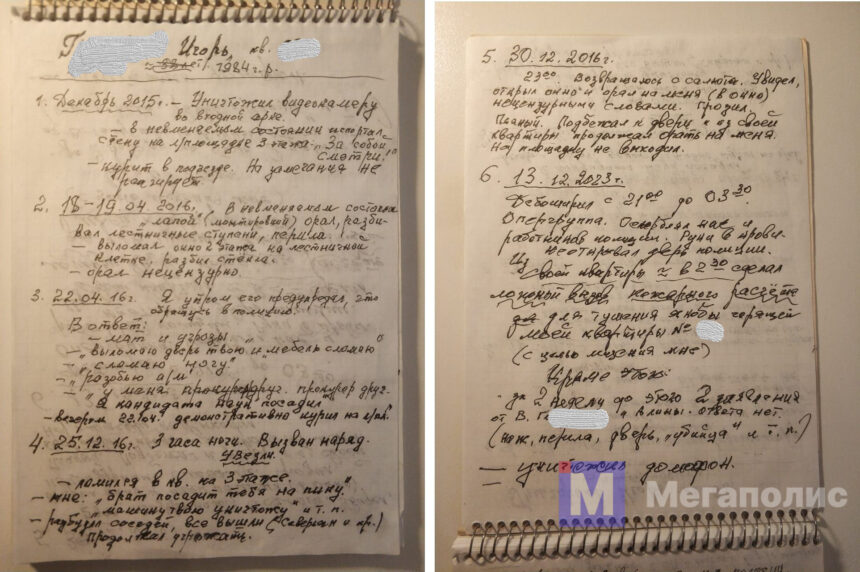 Г Игорь, кв.
1984 г.р.
1. Декабрь 2015 г. – Уничтожил видеокамеру
во входной арке.
– в невменяемом состоянии испортил
стену на л/площадке 3 этажа. "За собой
смотри!"
– курит в подъезде. На замечания не
реагирует.
2. 18–19.04.2016. В невменяемом состоянии
"лапой" (монтировкой) орал, разби-
вал лестничные ступени, перила.
– выломал окно 2 этажа на лестничной
клетке, разбил стёкла.
– орал нецензурно.
3. 22.04.16 г. Я утром его предупредил, что
обращусь в полицию.
В ответ:
– мат и угрозы
– "выломаю дверь твою и мебель сломаю"
– "сломаю ногу"
– "разобью а/м"
– "у меня прокурор друг.
Я кандидата наук посадил"
– вечером 22.04. демонстративно курил на л/пл.
4. 25.12.16 г. 3 часа ночи. Вызван наряд.
Увезли.
– ломился в кв. на 3 этаже.
– мне: "брат посадит тебя на пику."
"машину твою уничтожу" и т.п.
– разбудил соседей, все вышли (и др.)
Продолжал угрожать.
5. 30.12.2016 г.
23⁰⁰. Возвращаюсь с салюта. Увидел,
открыл окно и орал на меня (в окно)
нецензурными словами. Грозил.
Пьяный. Подбежал к двери и из своей
квартиры продолжал орать на меня.
На площадку не выходил.
6. 13.12.2023 г.
Дебоширил с 21⁰⁰ до 03³⁰.
Опергруппа. Оскорблял нас и
работников полиции. Рука в крови.
дверь полиции.
Из своей квартиры ≈ в 2³⁰ сделал
ложный вызов пожарного расчёта
для тушения якобы горящей
моей квартиры №
(с целью мщения мне)
Кроме того:
– за 2 недели до этого 2 заявления
от В. Г и Алины. Ответа нет.
(нож, перила, дверь, "убийца" и т.п.)
— уничтожил домофон.
М Мегаполис